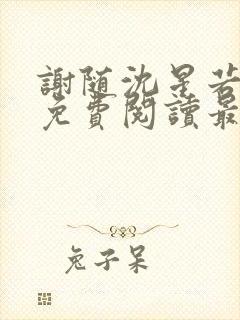 謝随沈星若
免費閱讀最
兔子呆